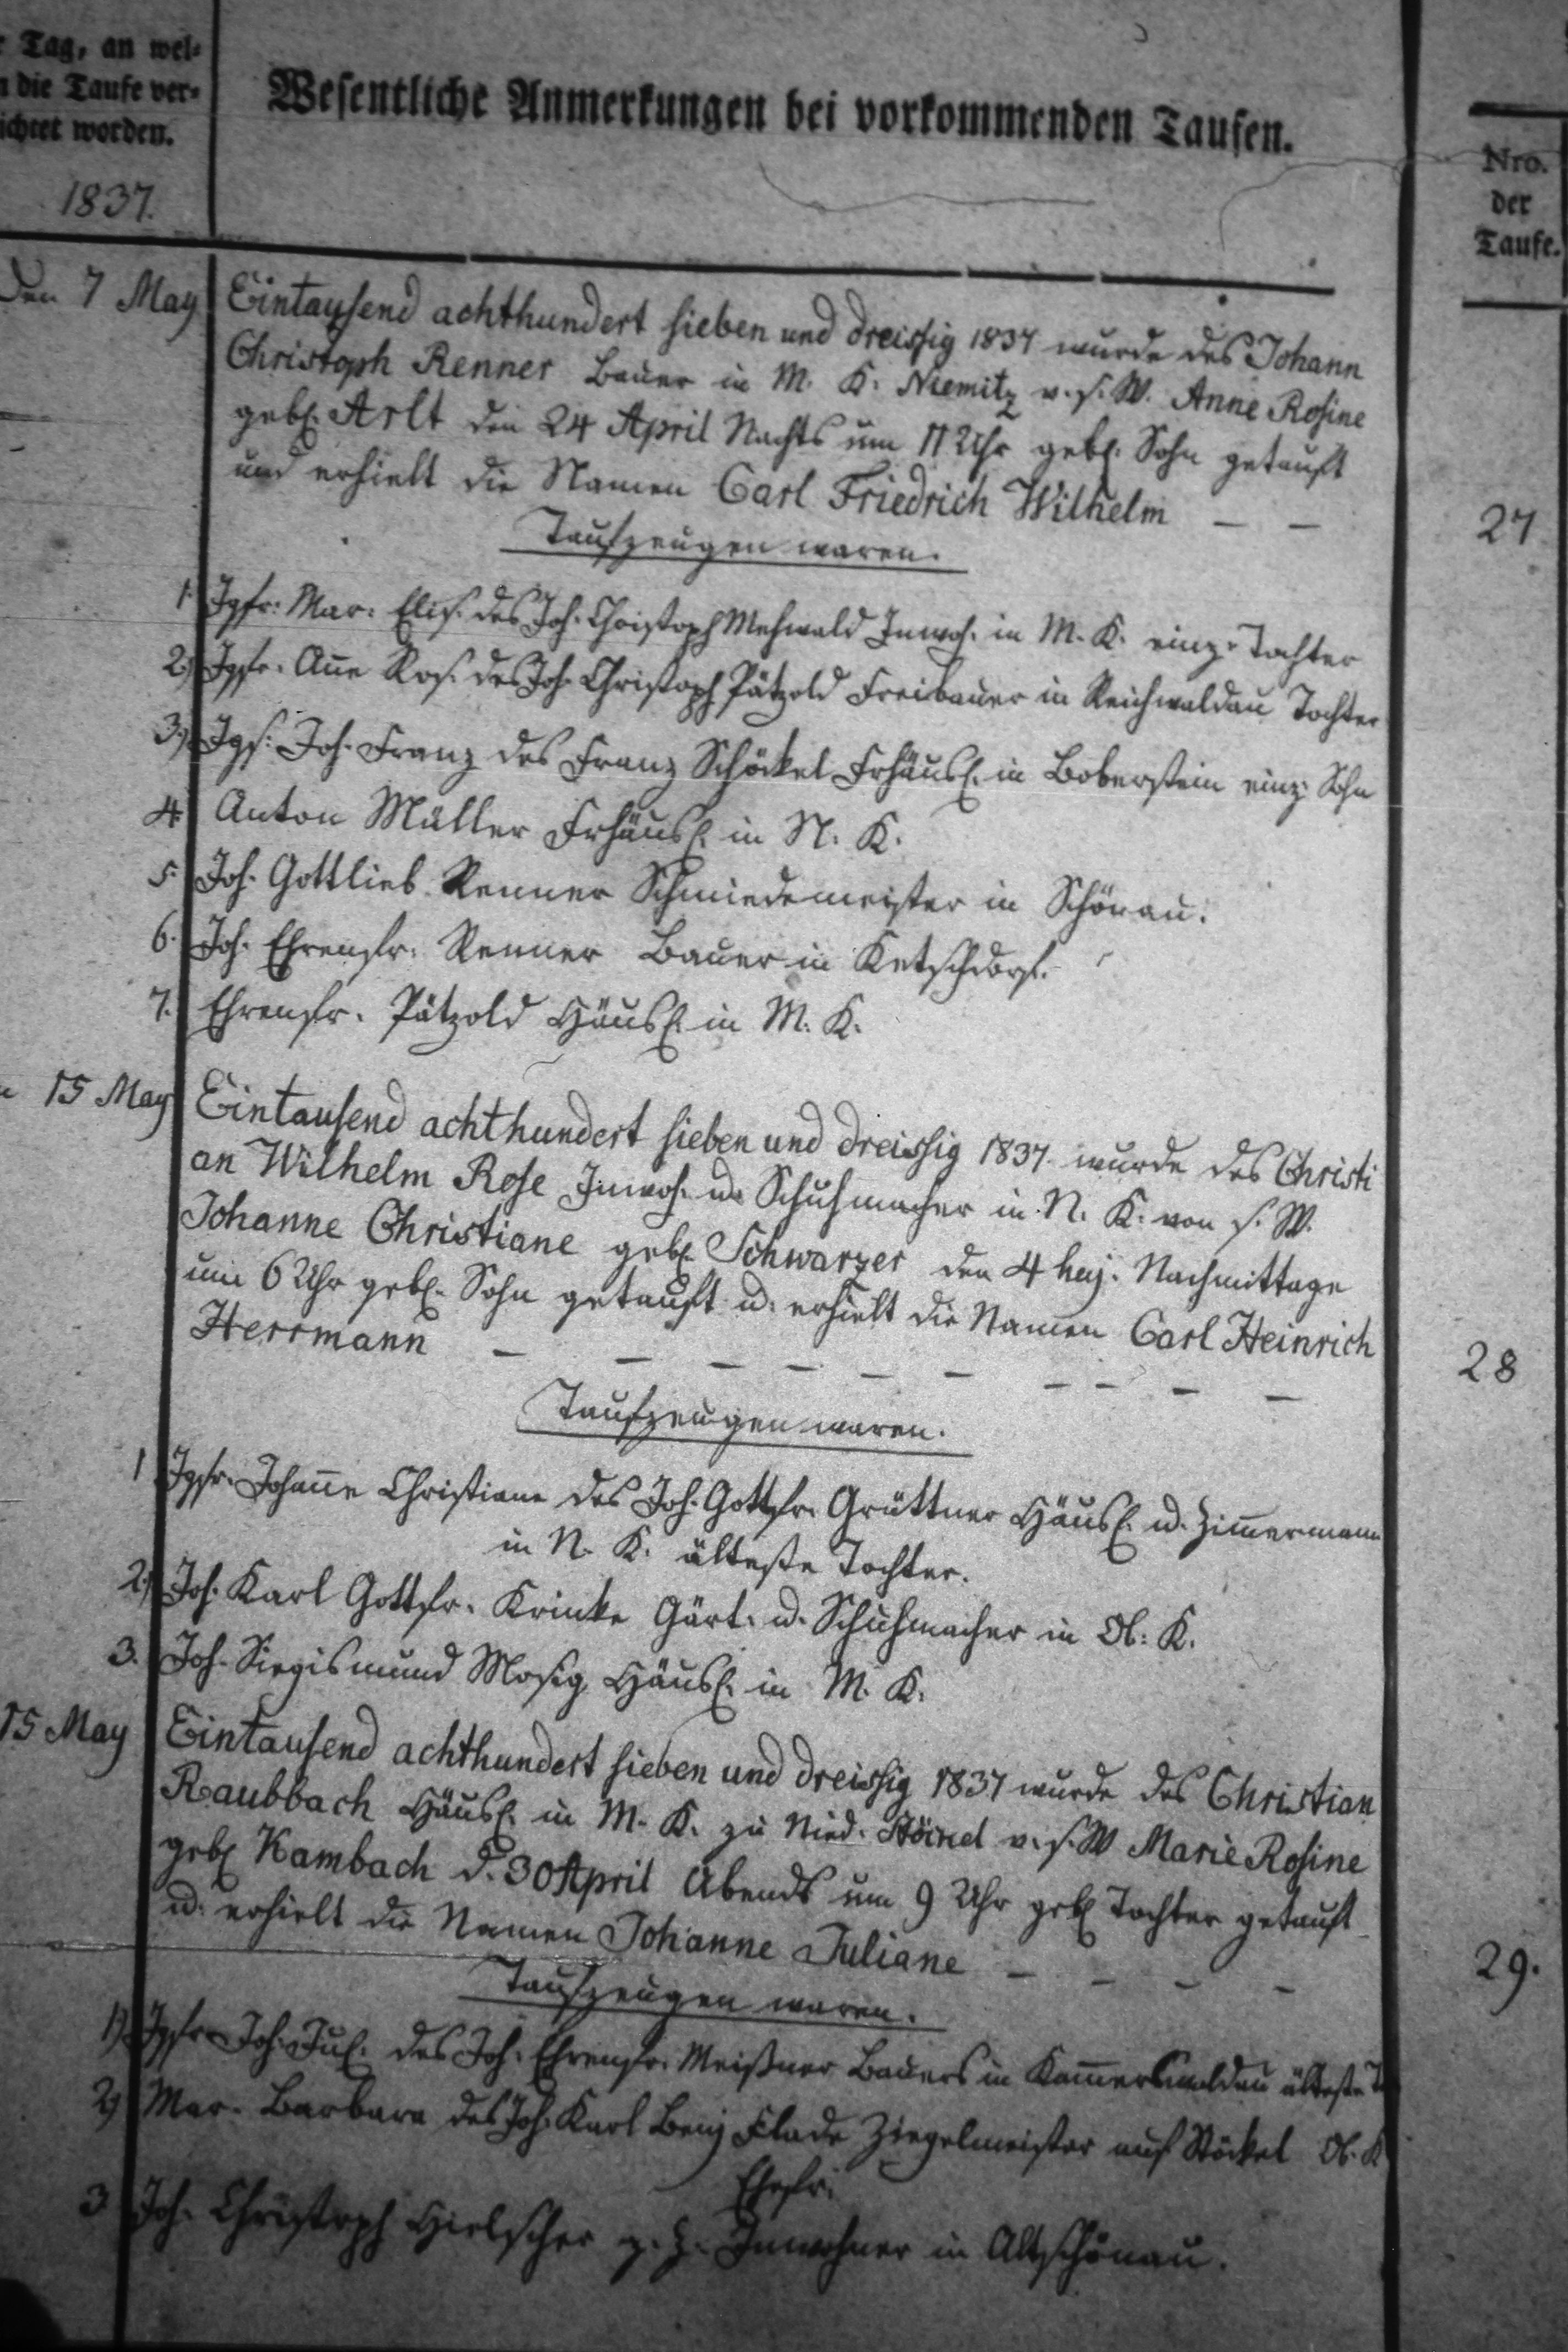 Tag, an wel-
die Taufe ver-
richtet worden.
Wesentliche Anmerkungen bei vorkommenden Taufen.
Nro.
der
Taufe.
1837.
Den 7 May Eintausend achthundert sieben und dreissig 1837 wurde des Johann
Christoph Renner Bauer in M. K. Niemitz v. s. W. Anne Rosine
geb. Arlt den 24 April Nachts um 11 Uhr geb. Sohn getauft
und erhielt die Namen Carl Friedrich Wilhelm — —
27
Taufzeugen waren.
1. Jgfr: Mar: Elis. des Joh. Christoph Mehwald Inwoh. in M. K. einz. Tochter
2.) Jgfr. Anne Ros. des Joh. Christoph Pätzold Freibauer in Reichwaldau Tochter
3.) Jgs: Joh. Franz des Franz Schöckel Frhäusl. in Boberstein einz. Sohn
4. Anton Müller Frhäusl. in N. K.
5. Joh. Gottlieb Renner Schmiedemeister in Schönau.
6. Joh. Ehrenfr. Renner Bauer in Ketschdorf.
7. Ehrenfr. Pätzold Häusl. in M. K.
15 May Eintausend achthundert sieben und dreissig 1837. wurde des Christi
an Wilhelm Rose Inwoh. u. Schuhmacher in N. K. von s. W.
Johanne Christiane geb. Schwarzer den 4 huj. Nachmittage
um 6 Uhr geb. Sohn getauft u. erhielt die Namen Carl Heinrich
Herrmann — — — — — — — — — —
28
Taufzeugen waren.
1. Jgfr. Johanne Christiane des Joh. Gottfr. Grüttner Häusl. u. Zimmermann
in N. K. älteste Tochter.
2.) Joh. Karl Gottfr. Krinke Gärt. u. Schuhmacher in Ob. K.
3. Joh. Siegismund Mosig Häusl. in M. K.
15 May Eintausend achthundert sieben und dreissig 1837 wurde des Christian
Raubbach Häusl. in M. K. zu Nied. v. s. W Marie Rosine
geb. Kambach d. 30 April Abends um 9 Uhr geb. Tochter getauft
u. erhielt die Namen Johanne Juliane — — — —
29.
Taufzeugen waren.
1) Jgfr. Joh. Jul. des Joh. Ehrenfr. Meißner Bauers in Kammerswaldau älteste T
2) Mar. Barbara des Joh. Karl Benj Flade Ziegelmeister auf Stöckel Ob. K
Ehefr.
3 Joh. Christoph Hielscher z. Z. Inwohner in Altschönau.